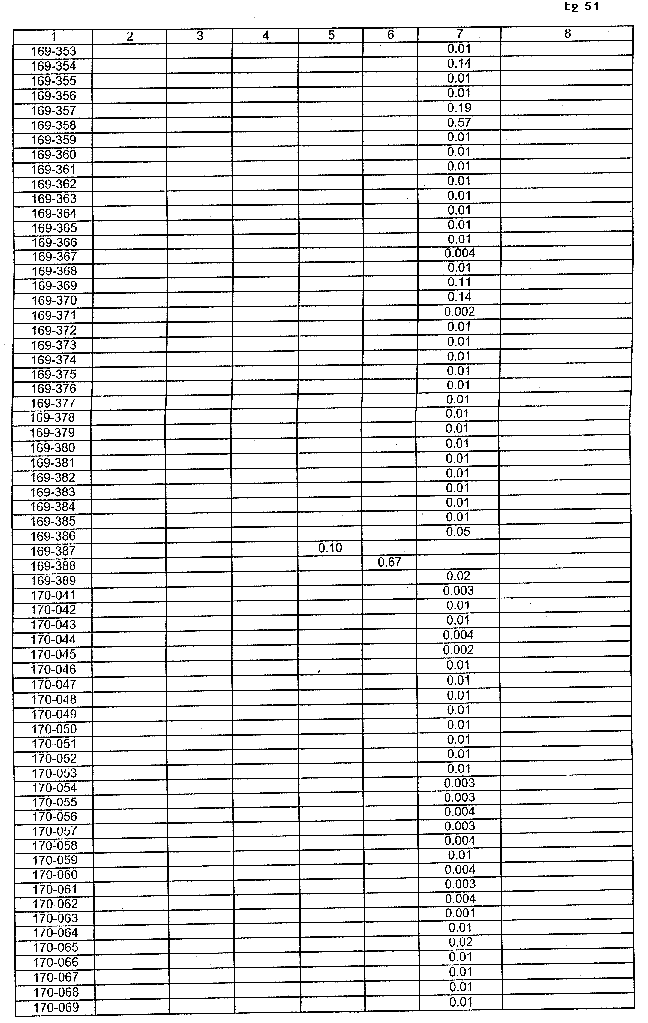 էջ 51
1 2 3 4 5 6 7 8
169-353 0.01
169-354 0.14
169-355 0.01
169-356 0.01
169-357 0.19
169-358 0.57
169-359 0.01
169-360 0.01
169-361 0.01
169-362 0.01
169-363 0.01
169-364 0.01
169-365 0.01
169-366 0.01
169-367 0.004
169-368 0.01
169-369 0.11
169-370 0.14
169-371 0.002
169-372 0.01
169-373 0.01
169-374 0.01
169-375 0.01
169-376 0.01
169-377 0.01
169-378 0.01
169-379 0.01
169-380 0.01
169-381 0.01
169-382 0.01
169-383 0.01
169-384 0.01
169-385 0.01
169-386 0.05
169-387 0.10
169-388 0.67
169-389 0.02
170-041 0.003
170-042 0.01
170-043 0.01
170-044 0.004
170-045 0.002
170-046 0.01
170-047 0.01
170-048 0.01
170-049 0.01
170-050 0.01
170-051 0.01
170-052 0.01
170-053 0.01
170-054 0.003
170-055 0.003
170-056 0.004
170-057 0.003
170-058 0.004
170-059 0.01
170-060 0.004
170-061 0.003
170-062 0.004
170-063 0.001
170-064 0.01
170-065 0.02
170-066 0.01
170-067 0.01
170-068 0.01
170-069 0.01